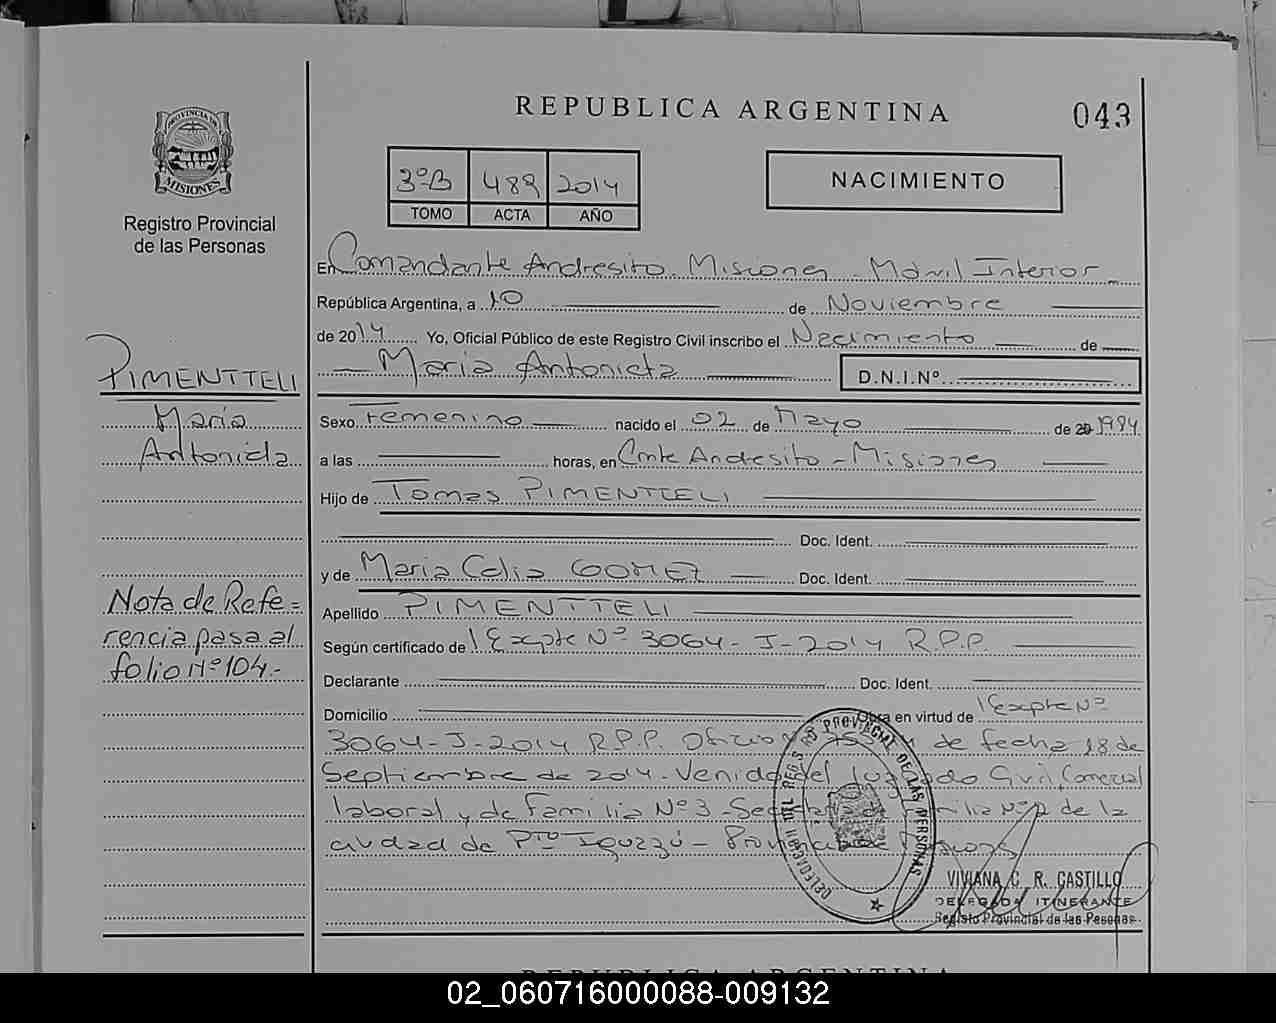 REPUBLICA ARGENTINA
043
PROVINCIA DE
MISIONES
Registro Provincial
de las Personas
3º B 489 2014
TOMO ACTA AÑO
NACIMIENTO
En Comandante Andresito Misiones - Móvil Interior
República Argentina, a 10 de Noviembre
de 2014 Yo, Oficial Público de este Registro Civil inscribo el Nacimiento de
Maria Antonieta D.N.I.Nº
PIMENTTELI
María
Antonieta
Sexo Femenino nacido el 02 de Mayo de 20 1994
a las horas, en Cmte Andresito - Misiones
Hijo de Tomas PIMENTTELI
Doc. Ident.
y de Maria Celia GOMEZ Doc. Ident.
Apellido PIMENTTELI
Nota de Refe=
rencia pasa al
folio Nº 104.-
Según certificado de Expte Nº 3064-J-2014 R.P.P.
Declarante Doc. Ident.
Domicilio Obra en virtud de Expte Nº
3064-J-2014 R.P.P. Oficio de fecha 18 de
Septiembre de 2014. Venido del Juzgado Civil, Comercial
laboral y de Familia Nº 3 - Nº 2 de la
ciudad de Pto Iguazú - Provincia de Misiones
DELEGACION DEL REGISTRO PROVINCIAL DE LAS PERSONAS
VIVIANA C. R. CASTILLO
DELEGADA ITINERANTE
Registo Provincial de las Pesonas
REPUBLICA ARGENTINA
02_060716000088-009132